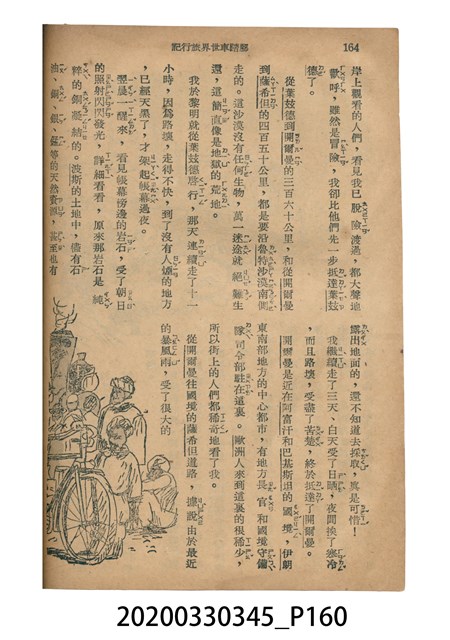 164
騎踏車世界旅行記
岸上觀看的人們，看見我已脫險渡過，都大聲地
歡呼，雖然是冒險，我卻比他們先一步抵達葉玆
德了。
從葉玆德到開爾曼的三百六十公里，和從開爾曼
到薩希但的四百五十公里，都是要沿魯特沙漠南側
走的。這沙漠沒有任何生物，萬一迷途就絕難生
還，這簡直像是地獄的荒地。
我於黎明就從葉玆德啓行，那天連續走了十一
小時，因爲路壞，走得不快，到了沒有人煙的地方
，已經天黑了，才架起帳幕過夜。
翌晨一醒來，看見帳幕傍邊的岩石，受了朝日
的照射閃閃發光，詳細看看，原來那岩石是純
粹的銅凝結的。波斯的土地中，儘有石
油、銅、銀、
等的天然資源，甚至也有
露出地面的，還不知道去採取，眞是可惜！
我繼續走了三天，白天受了日晒，夜間挨了寒冷
，而且路壞，受盡了苦楚，終於抵達了開爾曼。
開爾曼是近在阿富汗和巴基斯坦的國境，伊朗
東南部地方的中心都市，有地方長官和國境守備
隊司令部駐在這裏。歐洲人來到這裏的很稀少，
所以街上的人們都稀奇地看了我。
從開爾曼往國境的薩希但道路，據說由於最近
的暴風雨，受了很大的
20200330345_P160